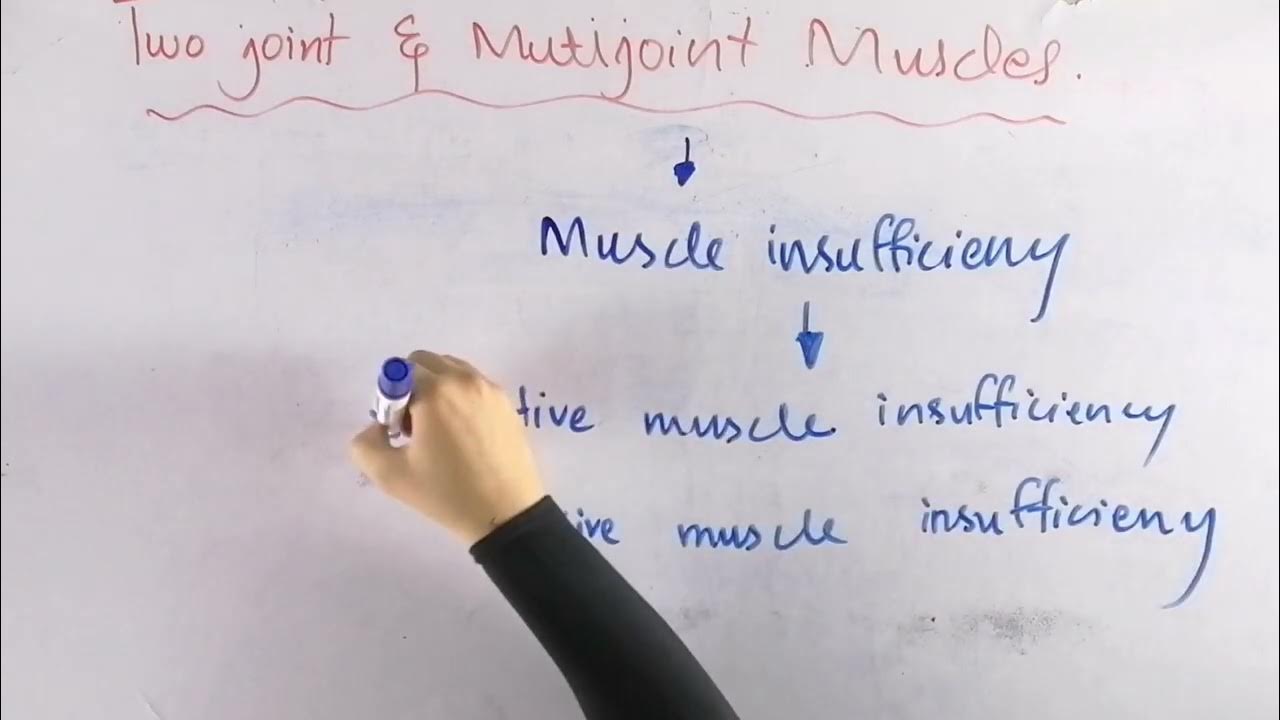 Two joint & Mutijoint Muscles.
Muscle insufficieny
tive muscle insufficiency
ive muscle insufficieny